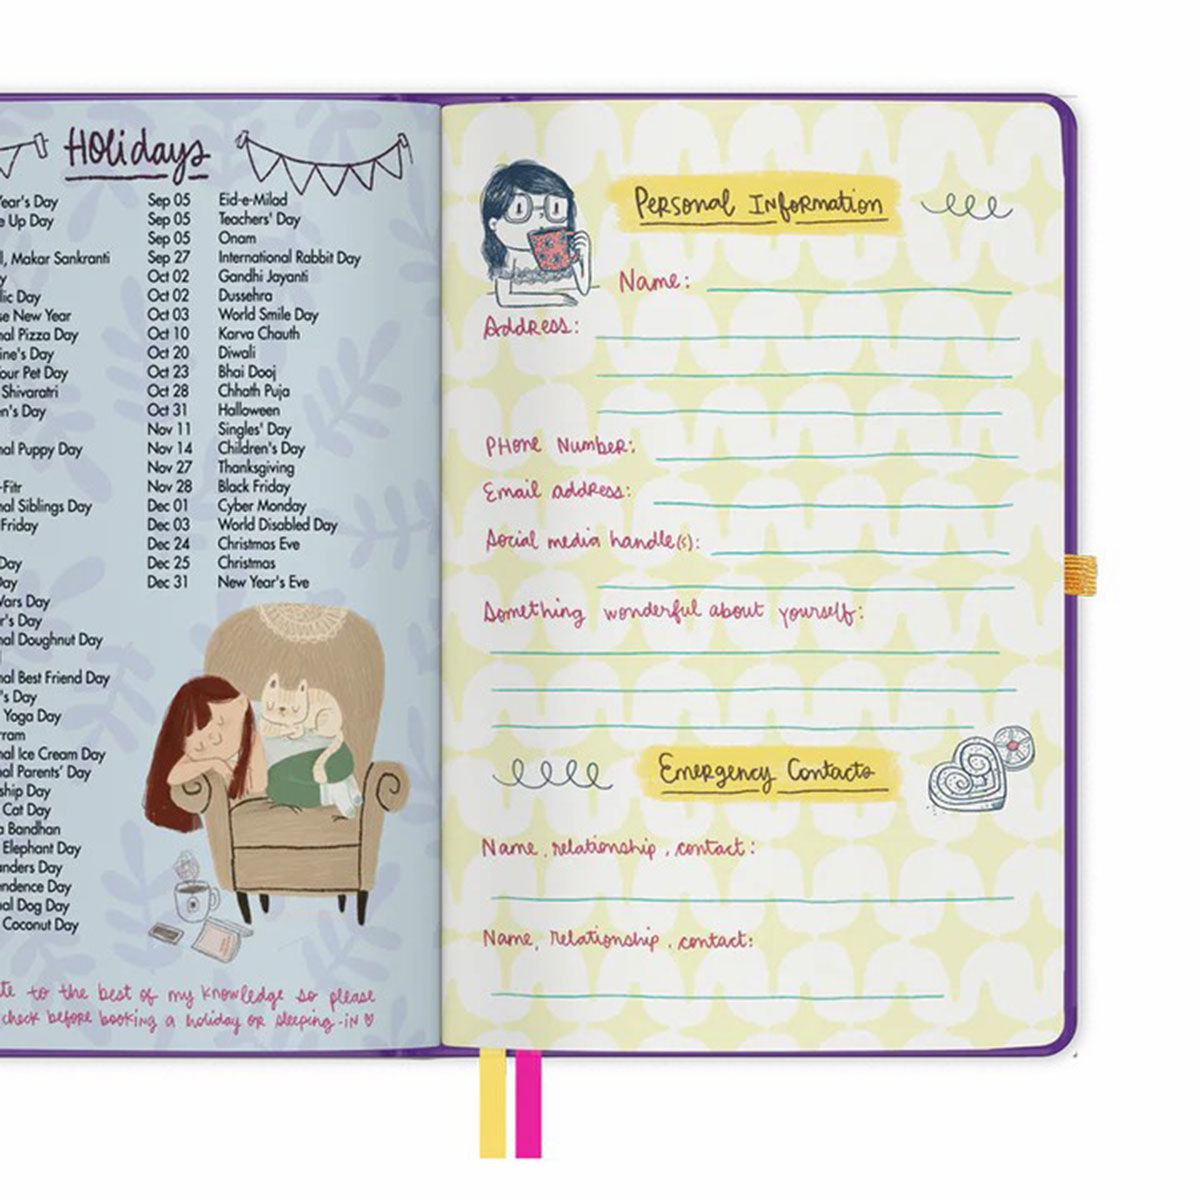 Holidays
Year's Day
e Up Day
l, Makar Sankranti
y
lic Day
se New Year
nal Pizza Day
ine's Day
our Pet Day
Shivaratri
en's Day
nal Puppy Day
-Fitr
nal Siblings Day
Friday
Day
Day
Wars Day
r's Day
nal Doughnut Day
nal Best Friend Day
's Day
Yoga Day
rram
nal Ice Cream Day
nal Parents' Day
ship Day
Cat Day
a Bandhan
Elephant Day
anders Day
endence Day
nal Dog Day
Coconut Day
Sep 05 Eid-e-Milad
Sep 05 Teachers' Day
Sep 05 Onam
Sep 27 International Rabbit Day
Oct 02 Gandhi Jayanti
Oct 02 Dussehra
Oct 03 World Smile Day
Oct 10 Karva Chauth
Oct 20 Diwali
Oct 23 Bhai Dooj
Oct 28 Chhath Puja
Oct 31 Halloween
Nov 11 Singles' Day
Nov 14 Children's Day
Nov 27 Thanksgiving
Nov 28 Black Friday
Dec 01 Cyber Monday
Dec 03 World Disabled Day
Dec 24 Christmas Eve
Dec 25 Christmas
Dec 31 New Year's Eve
te to the best of my knowledge so please
check before booking a holiday or sleeping-in
Personal Information
Name:
Address:
Phone Number:
Email address:
Social media handle(s):
Something wonderful about yourself:
Emergency Contacts
Name, relationship, contact:
Name, relationship, contact: